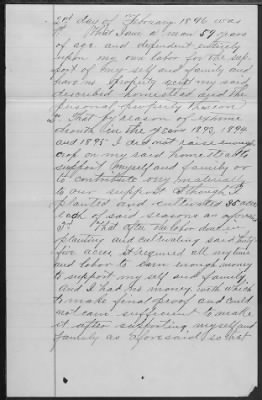 2nd day of February 1896 was
That I am a man 59 years
of age and dependent entirely
upon my own labor for the sup-
port of myself and family and
have no property except my said
described homestead and the
personal property thereon
2. That by reason of extreme
drouth in the years 1893, 1894
and 1895 I did not raise enough
crop on my said homestead to
support myself and family or
to contribute very materially
to our support although I
planted and cultivated 35 acres
each of said seasons as aforesaid
3. That after the labor due in
planting and cultivating said thirty
five acres it required all my time
and labor to earn enough money
to support my self and family
and I had no money with which
to make final proof and could
not earn sufficient to make
it after supporting myself and
family as aforesaid, so that